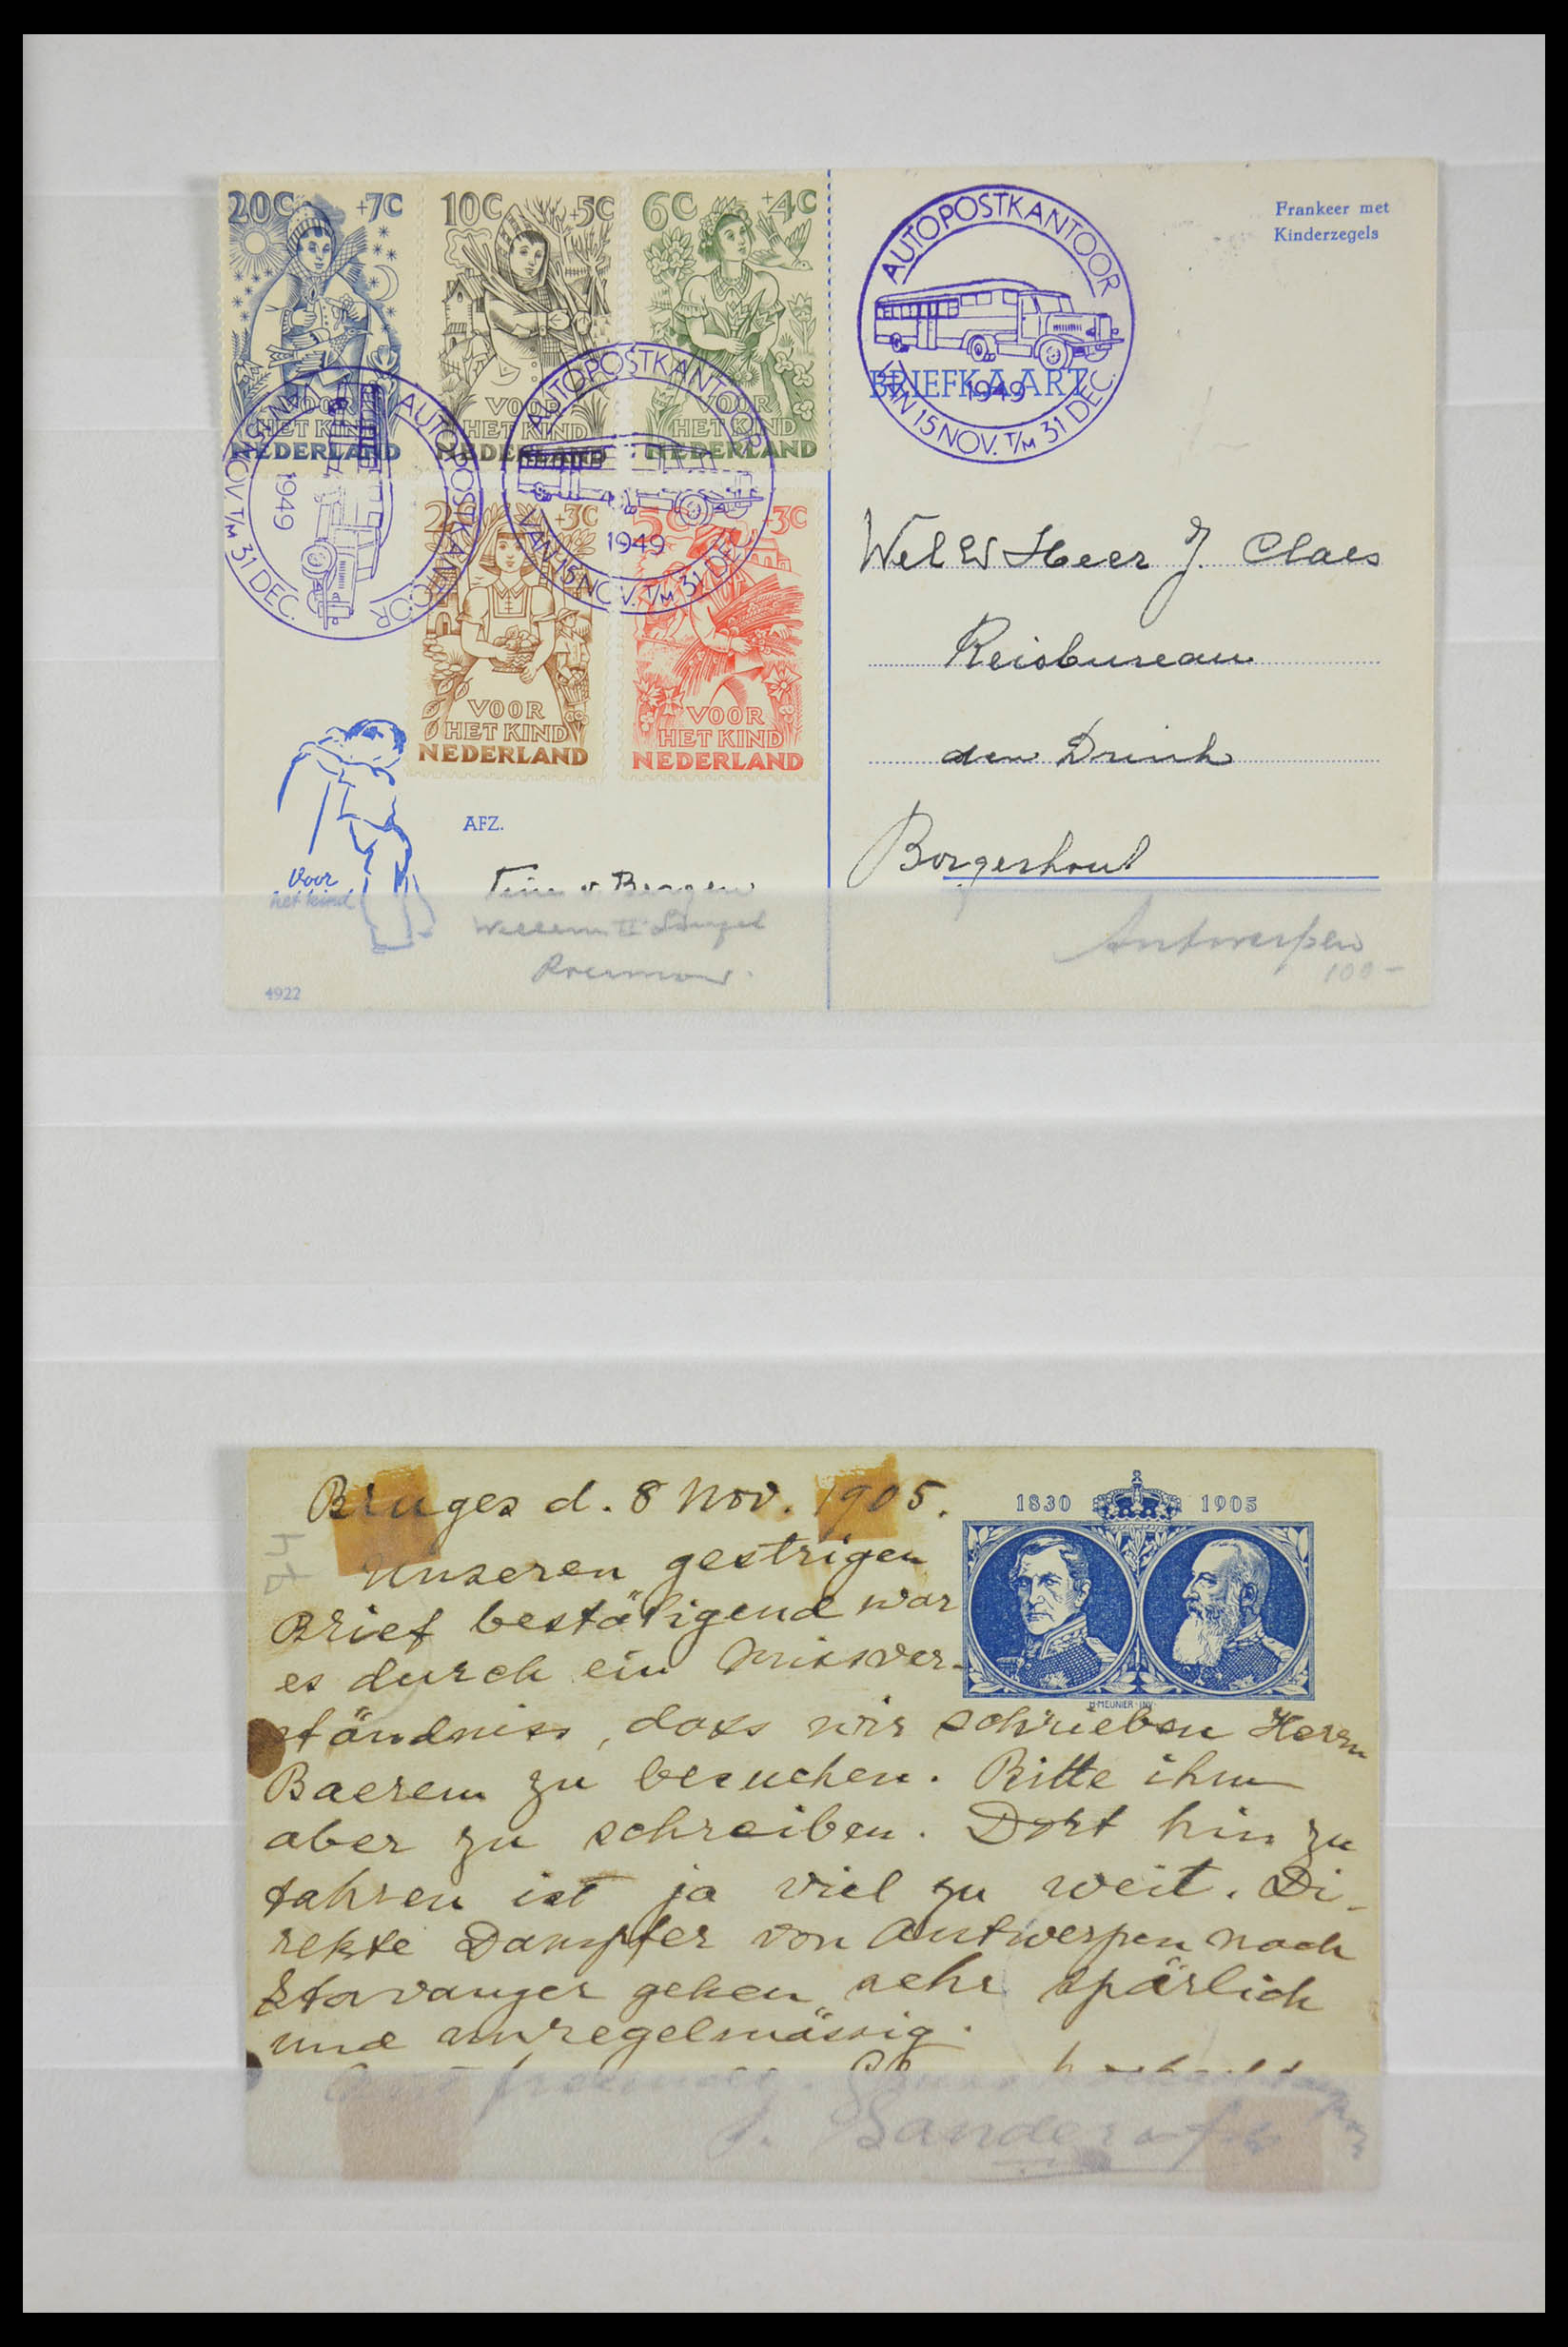 20C +7C
VOOR
HET KIND
NEDERLAND
10C +5C
VOOR
HET KIND
NEDERLAND
6C +4C
VOOR
HET KIND
NEDERLAND
+3C
VOOR
HET KIND
NEDERLAND
5C +3C
VOOR
HET KIND
NEDERLAND
AUTOPOSTKANTOOR
1949
VAN 15 NOV. T/M 31 DEC.
AUTOPOSTKANTOOR
1949
VAN 15 NOV. T/M 31 DEC.
AUTOPOSTKANTOOR
1949
VAN 15 NOV. T/M 31 DEC.
Frankeer met
Kinderzegels
BRIEFKAART
Wel Ed Heer J. Claes
Reisbureau
den Drink
Borgerhout
Antwerpen
100 -
Voor
het kind
AFZ.
v. Bergen
Willem II Singel
4922
Bruges d. 8 Nov. 1905.
1830 1905
H·MEUNIER·INV·
Unseren gestrigen
Brief bestätigend war
es durch ein Missver-
ständniss, dass wir schrieben Herrn
Baerem zu besuchen. Bitte ihm
aber zu schreiben. Dort hin zu
fahren ist ja viel zu weit. Di-
rekte Dampfer von Antwerpen nach
Stavanger gehen sehr spärlich
und unregelmässig.
J. Sander